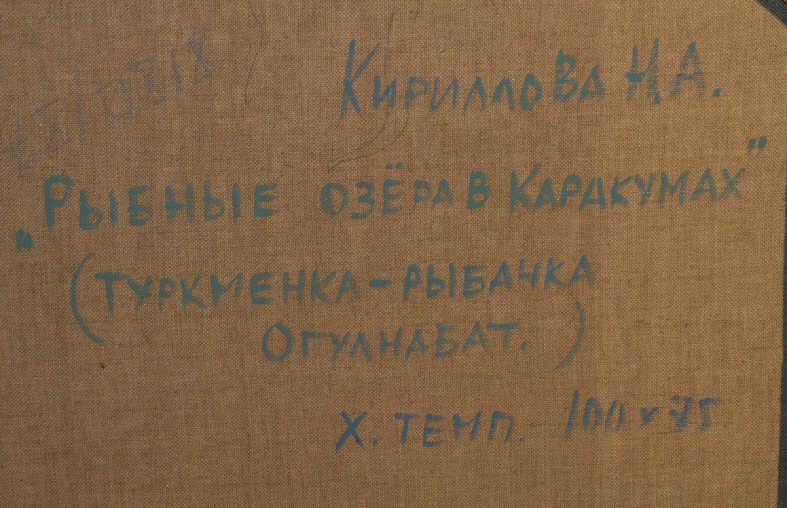 Кириллова Н.А.
„Рыбные озёра в Каракумах"
(Туркменка-рыбачка
Огулнабат.)
Х. темп. 100 х 75